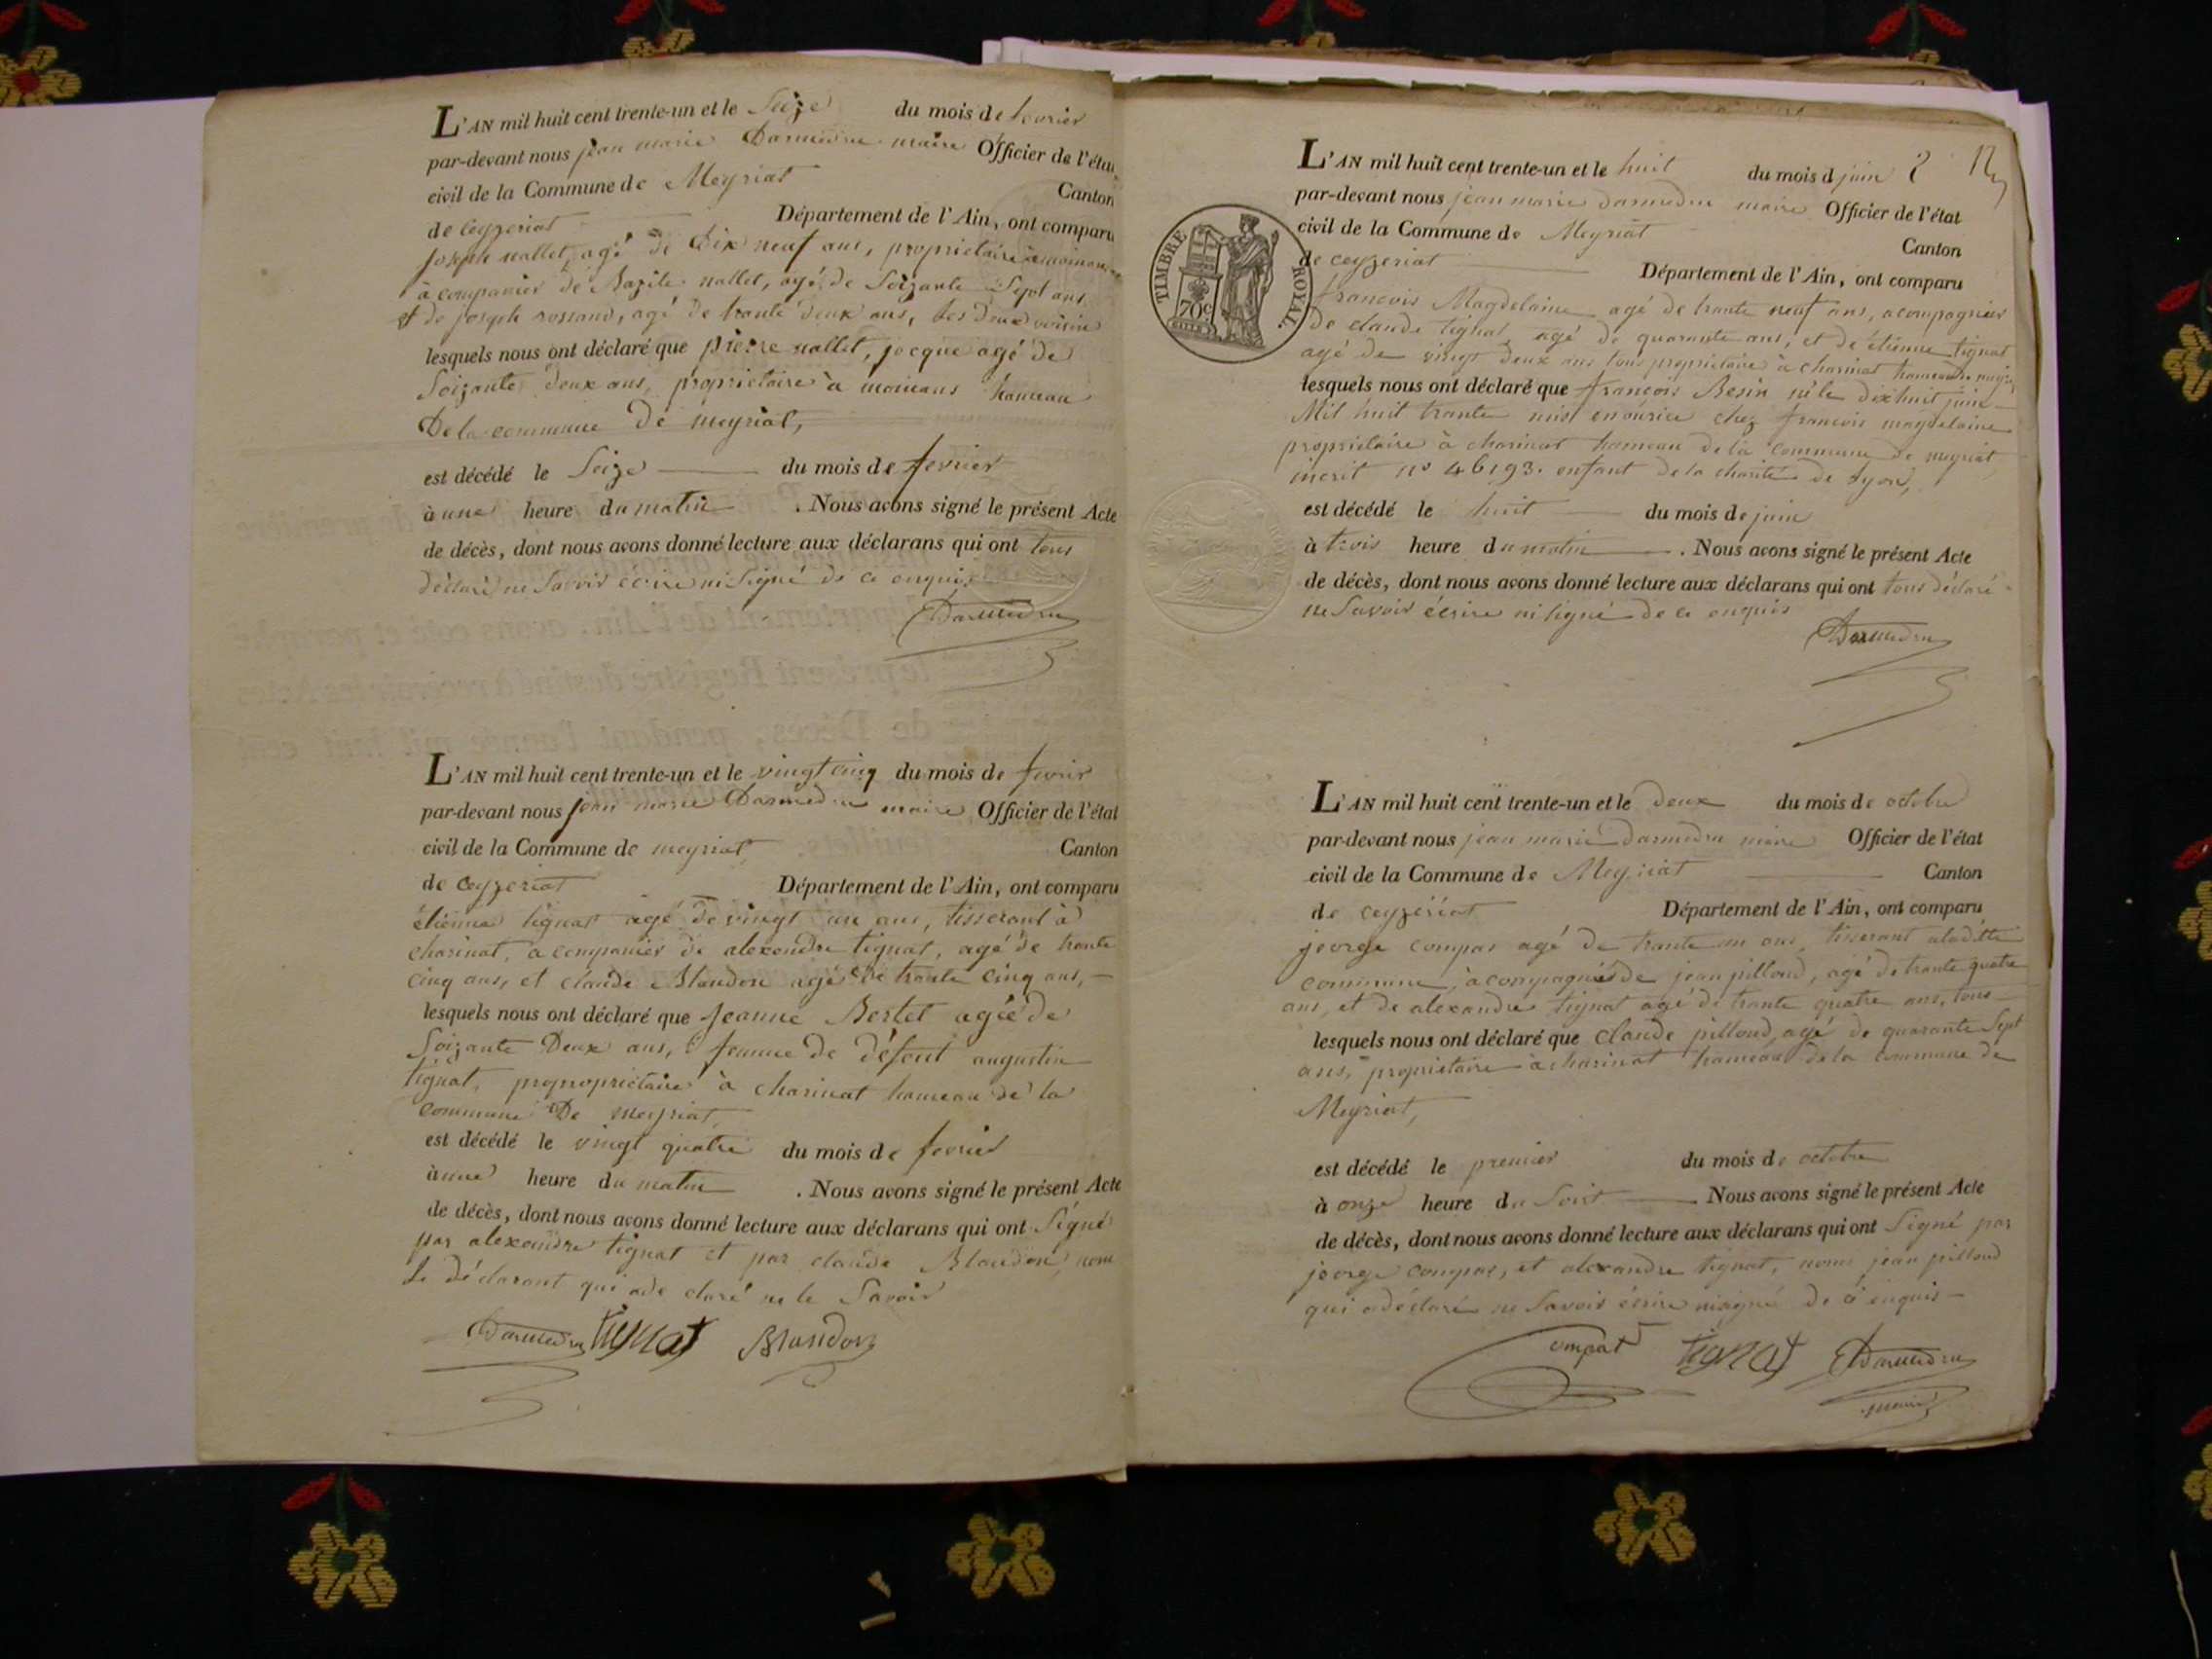 L'AN mil huit cent trente-un et le Seize du mois de fevrier
par-devant nous jean marie Darmedru maire Officier de l'état
civil de la Commune de Meyriat Canton
de ceyzeriat Département de l'Ain, ont comparu
Joseph nallet, agé de Dix neuf ans, proprietaire à
à companier de Bazile nallet, agé de Soizante Sept ans
et de joseph rossand, agé de trante deux ans, les deux voisin
lesquels nous ont déclaré que pierre nallet, jocque agé de
Soizante deux ans, proprietaire à moinans hameau
De la commune de meyriat,
est décédé le Seize du mois de fevrier
à une heure du matin . Nous avons signé le présent Acte
de décès, dont nous avons donné lecture aux déclarans qui ont tous
déclaré ne Savoir écrire ni Signé de ce enquis
Darmedru
L'AN mil huit cent trente-un et le vingt cinq du mois de fevrir
par-devant nous jean marie Darmedru maire Officier de l'état
civil de la Commune de meyriat Canton
de ceyzeriat Département de l'Ain, ont comparu
étienne tignat agé de vingt un ans, tisserant à
charinat, a companier de alexendre tignat, agé de trante
cinq ans, et claude Blandon agé de trante cinq ans,
lesquels nous ont déclaré que Jeanne Bertet agée de
Soizante Deux ans, femme de défeut augustin
tignat, propropriétaire à charinat hameau de la
commune De meyriat,
est décédé le vingt quatre du mois de fevrier
à une heure du matin . Nous avons signé le présent Acte
de décès, dont nous avons donné lecture aux déclarans qui ont Signé
par alexandre tignat et par claude Blandon, non
le déclarant qui a de claré ne le Savoir
Darmedru tignat Blandon
L'AN mil huit cent trente-un et le huit du mois d juin 2
par-devant nous jean marie darmedru maire Officier de l'état
civil de la Commune de Meyriat Canton
de ceyzeriat Département de l'Ain, ont comparu
TIMBRE ROYAL.
70c
francois Magdelaine agé de trante neuf ans, acompagnier
de claude tignat, agé de quarante ans, et de étienne tignat
agé de vingt deux ans tous proprietaire à charinat hameau de
lesquels nous ont déclaré que françois Besin né le dixhuit juin
Mil huit trante mis enourice chez francois magdelaine
proprietaire à charinat hameau de la commune de meyriat
incrit no 46193. enfant de la charité de Lyon,
est décédé le huit du mois de juin
à trois heure du matin . Nous avons signé le présent Acte
de décès, dont nous avons donné lecture aux déclarans qui ont tous déclaré
ne Savoir écrire ni signé de ce enquis
Darmedru
L'AN mil huit cent trente-un et le Deux du mois de octobre
par-devant nous jean marie darmedru maire Officier de l'état
civil de la Commune de Meyriat Canton
de ceyzériat Département de l'Ain, ont comparu
jeorge compas agé de trante un ans, tisserant aladitte
commune, acompagnier de jean pilloud, agé de trante quatre
ans, et de alexandre tignat agé de trante quatre ans, tous
lesquels nous ont déclaré que claude pilloud, agé de quarante Sept
ans, proprietaire à charinat hameau de la commune de
Meyriat,
est décédé le premier du mois de octobre
à onze heure du Soirt . Nous avons signé le présent Acte
de décès, dont nous avons donné lecture aux déclarans qui ont Signé par
jeorge compas, et alexandre tignat, nons jean pilloud
qui a déclaré ne Savoir écrire nisigné de ce enquis
Compat tignat Darmedru
maire